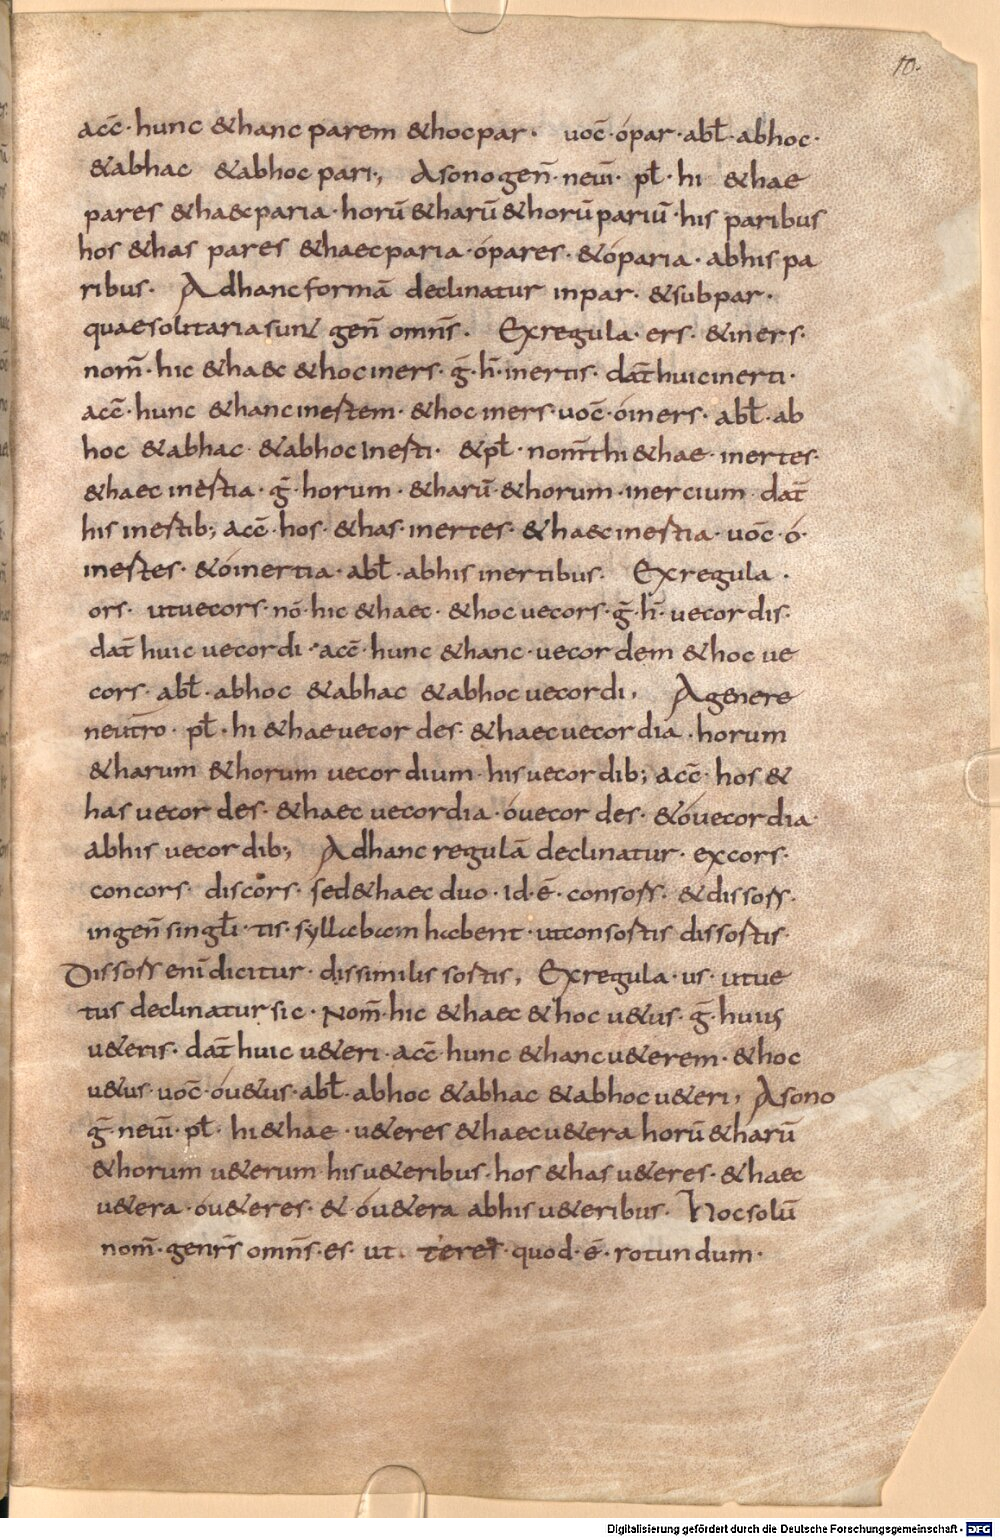 10.
acc̄· hunc &hanc parem &hocpar· uoc̄· ópar· abł· abhoc·
&abhac &abhoc pari·, Asonogen̄· neuī· pł· hi &hae
pares &haecparia· horū &harū &horū pariū· his paribus
hos &has pares &haecparia· ópares· &óparia· abhis pa
ribus· Adhancformā declinatur inpar· &subpar·
quaesolitariasunt gen̄ omnīs· Exregula· ers· &iners·
nom̄· hic &haec &hociners· ḡ· h̄· inertis· dat̄ huicinerti·
acc̄· hunc &hancinertem· &hoc iners· uoc̄· óiners· abł· ab
hoc &abhac· &abhocinerti· &pł· nom̄ hi &hae· inertes·
&haec inertia· ḡ· horum· &harū· &horum· inercium· dat̄
his inertib; acc̄· hos· &has· inertes· &haecinertia· uoc̄· ó·
inertes· &óinertia· abł· abhis inertibus· Exregula·
ors· utuecors· nō· hic &haec· &hoc uecors· ḡ· h̄· uecordis·
dat̄ huic uecordi· acc̄· hunc &hanc· uecordem &hoc ue
cors· abł· abhoc &abhac &abhoc uecordi, Agenere
neutro· pł· hi &haeuecordes· &haecuecordia· horum
&harum &horum uecordium· hisuecordib; acc̄· hos &
has uecordes· &haec uecordia· óuecordes· &óuecordia·
abhis uecordib; Adhanc regulā declinatur· excors·
concors· discors· sed&haec duo· id· ē· consors· &dissors·
ingen̄ singłi· tis· syllabam habent· utconsortis dissortis·
Dissors enī dicitur· dissimilis sortis, Exregula· us· utue
tus declinatur sic· Nom̄· hic &haec &hoc u&us· ḡ· huius
u&eris· dat̄ huic u&eri· acc̄· hunc &hancu&erem· &hoc
u&us· uoc̄· óu&us· abł· abhoc &abhac &abhocu&eri, Asono
ḡ· neuī· pł· hi &hae· u&eres &haecu&era horū &harū
&horum u&erum· hisu&eribus· hos &has u&eres· &haec
u&era· óu&eres· & óu&era abhisu&eribus· Hocsolū
nom̄· genr̄s omn̄s· es· ut teres quod· ē· rotundum·
Digitalisierung gefördert durch die Deutsche Forschungsgemeinschaft - DFG